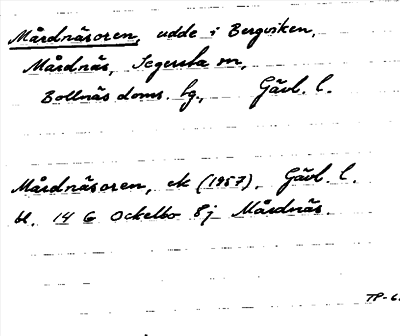 Mårdnäsoren, udde i Bergviken,
Mårdnäs, Segersta sn,
Bollnäs doms. hg., Gävl. l.
Mårdnäsoren, ek (1957). Gävl. l.
bl. 14 G Ockelbo 8j Mårdnäs.
TP-6